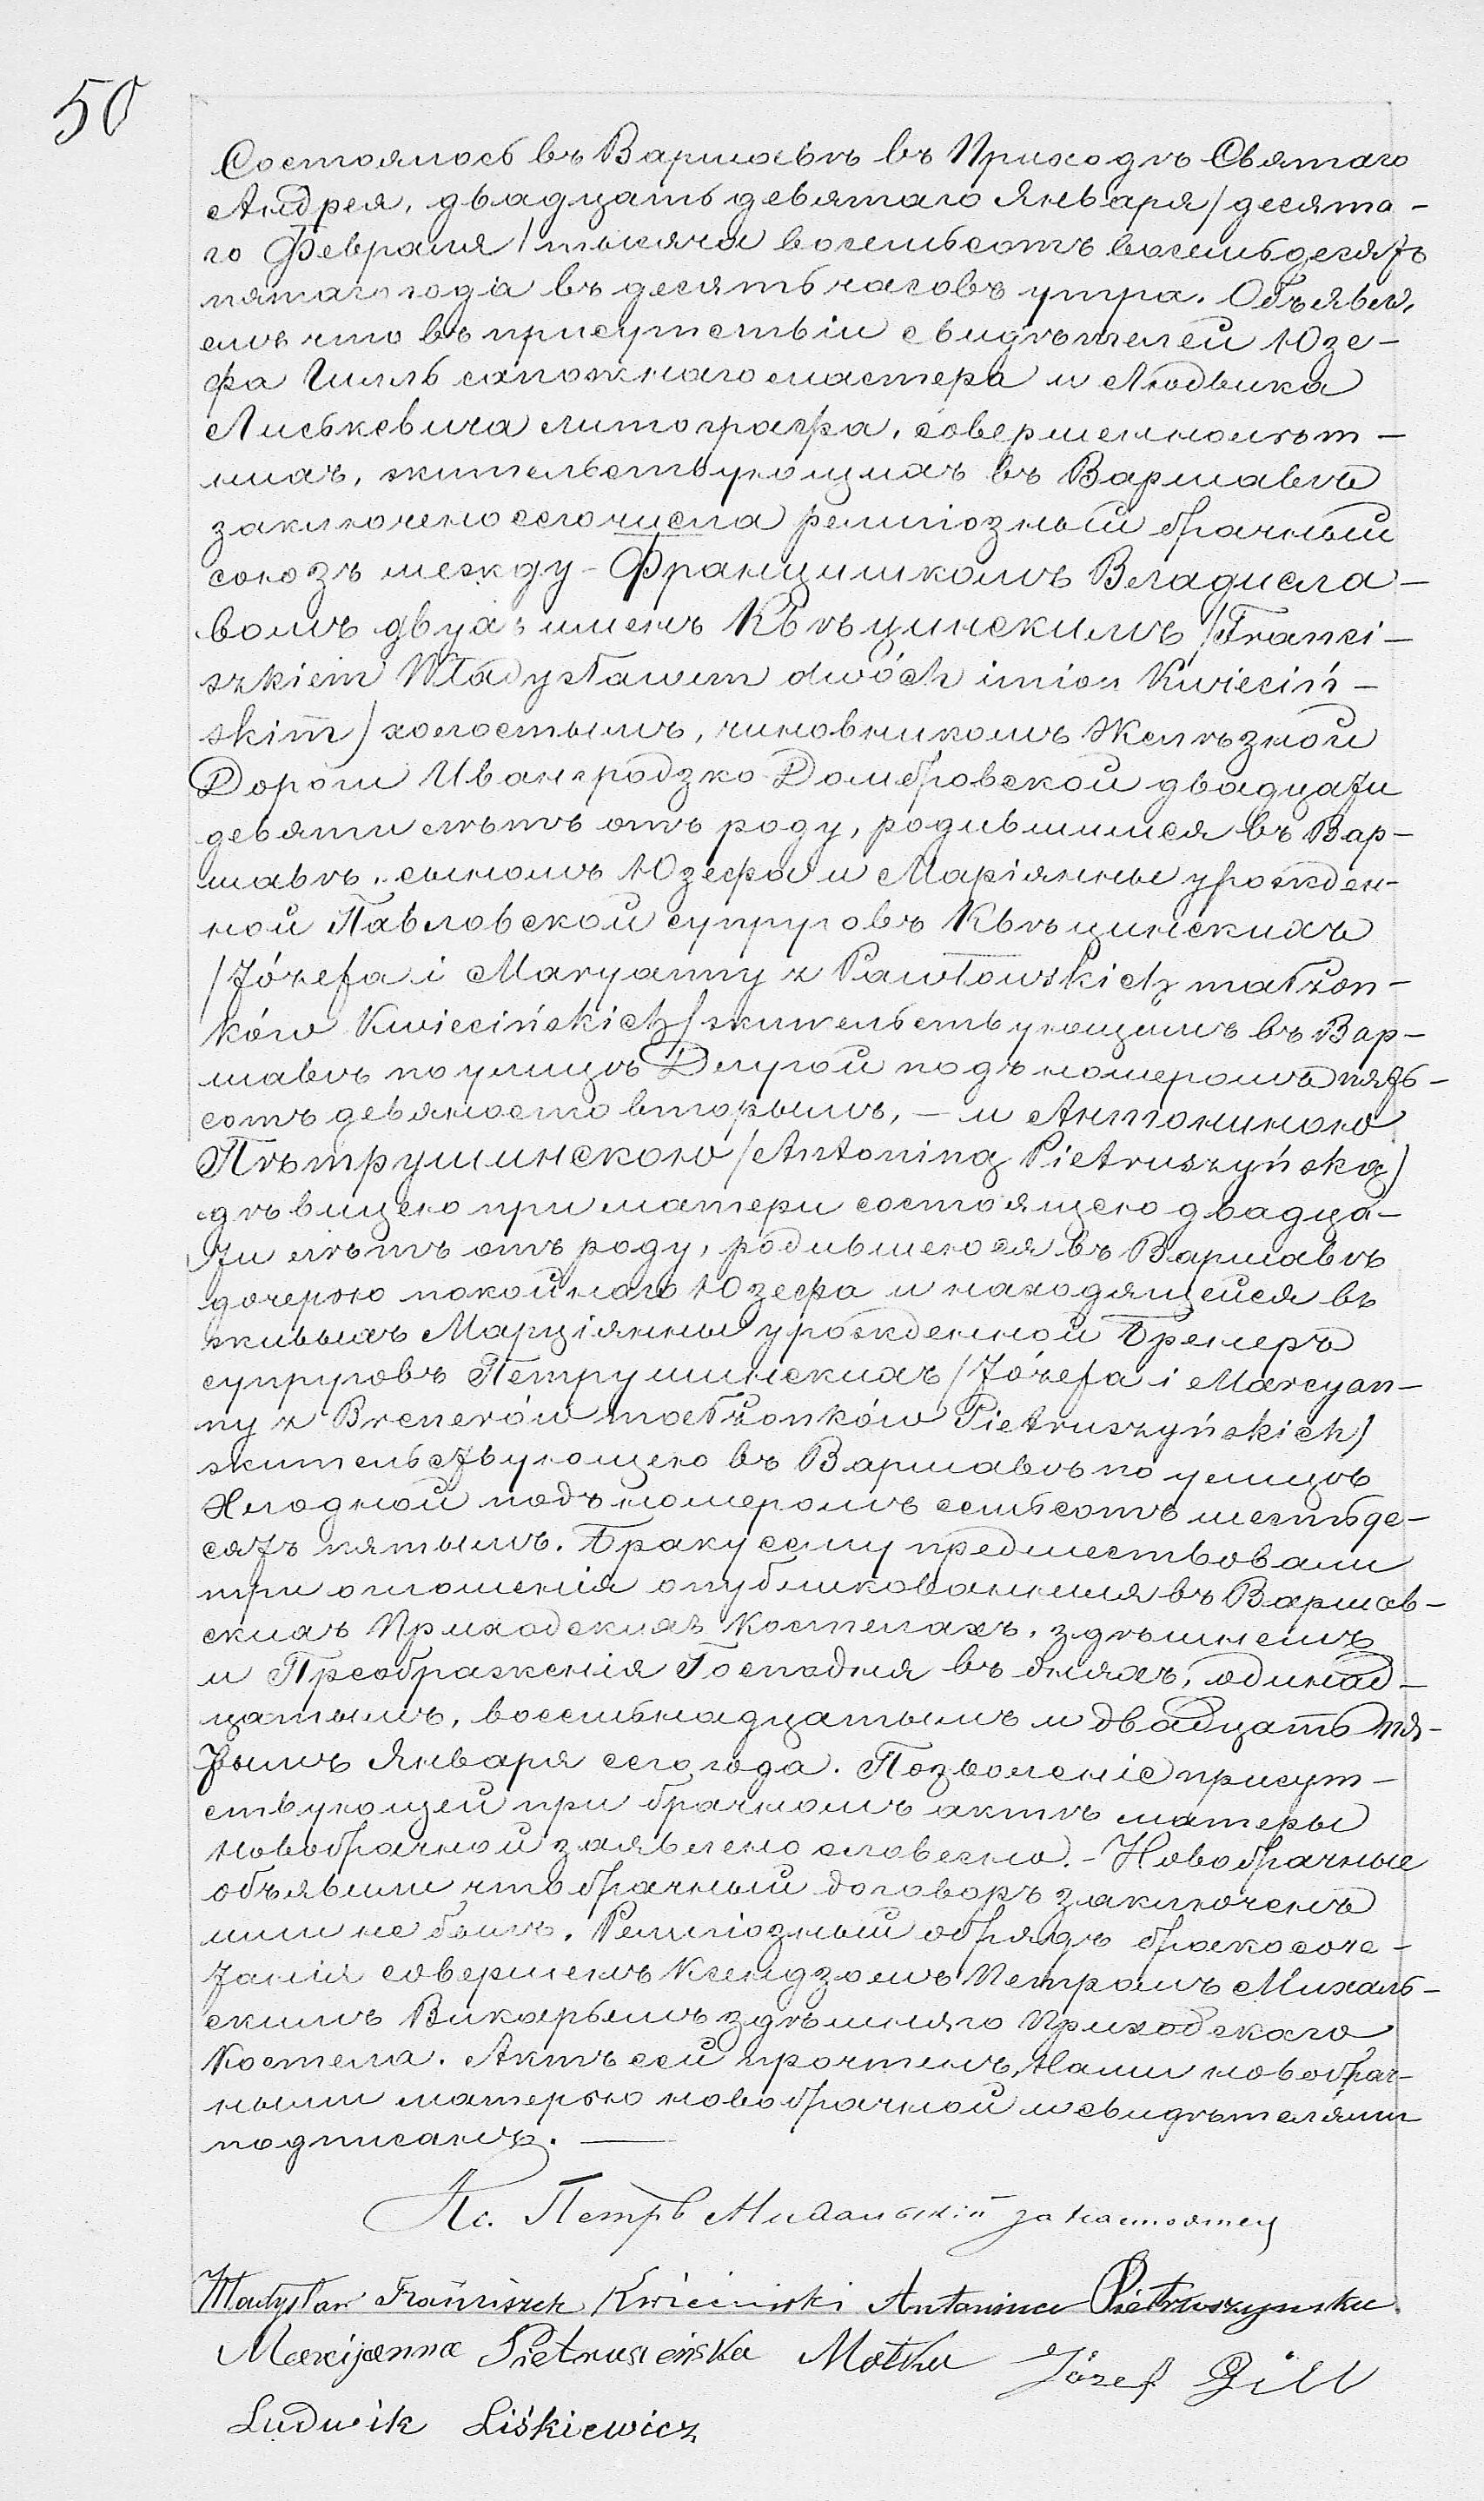 50
Состоялось въ Варшавѣ въ Приходѣ Святаго
Андрея, двадцать девятаго Января /десята-
го Февраля/ тысяча восемьсотъ восемьдесятъ
пятаго года въ десять часовъ утра. Объявля-
емъ что въ присутствіи свидѣтелей Юзе-
фа Гилль сапожнаго мастера и Людвика
Лиськевича литографа, совершеннолѣт-
нихъ, жительствующихъ въ Варшавѣ
заключено сего числа религіозный брачный
союзъ между - Францишкомъ Владисла-
вомъ двухъ именъ Квѣцинскимъ /Franci-
szkiem Władysławem dwóch imion Kwieciń-
skim/ холостымъ, чиновникомъ Желѣзной
Дороги Ивангродзко Домбровской двадцати
девяти лѣтъ отъ роду, родившимся въ Вар-
шавѣ, сыномъ Юзефа и Маріянны урожден-
ной Павловской супруговъ Квѣцинскихъ
/Józefa i Maryanny z Pawłowskich małżon-
ków Kwiecińskich/ жительствующимъ въ Вар-
шавѣ по улицѣ Длугой подъ номеромъ пять-
сотъ девяносто вторымъ, - и Антониною
Пѣтрушинскою /Antoniną Pietruszyńską/
дѣвицею при матери состоящею двадца-
ти лѣтъ отъ роду, родившеюся въ Варшавѣ
дочерью покойнаго Юзефа и находящейся въ
живыхъ Марціянны урожденной Бренеръ
супруговъ Петрушинскихъ /Józefa i Marcyan-
ny z Brenerów małżonków Pietruszyńskich/
жительствующею въ Варшавѣ по улицѣ
Хлодной подъ номеромъ семьсотъ шестьде-
сятъ пятымъ. Браку сему предшествовали
три оглошенія опубликованныя въ Варшав-
скихъ Приходскихъ Костелахъ, здѣшнемъ
и Преображенія Господня въ дняхъ, одинад-
цатымъ, восемьнадцатымъ и двадцать пя-
тымъ Января сего года. Позволеніе присут-
ствующей при брачномъ актѣ матеры
новобрачной заявлено словесно. - Новобрачные
объявили что брачный договоръ заключенъ
ими не былъ. Религіозный обрядъ бракосоче-
танія совершенъ Ксендзомъ Петромъ Михаль-
скимъ Викарымъ здѣшняго Приходскаго
Костела. Актъ сей прочтенъ, Нами новобрач-
ными матерью новобрачной и свидѣтелями
подписанъ. —
Кс. Петръ Михальскій за настоятеля
Władysław Franciszek Kwieciński Antonina Pietruszynska
Marcijanna Pietrusieńska Matka Józef Gill
Ludwik Liśkiewicz